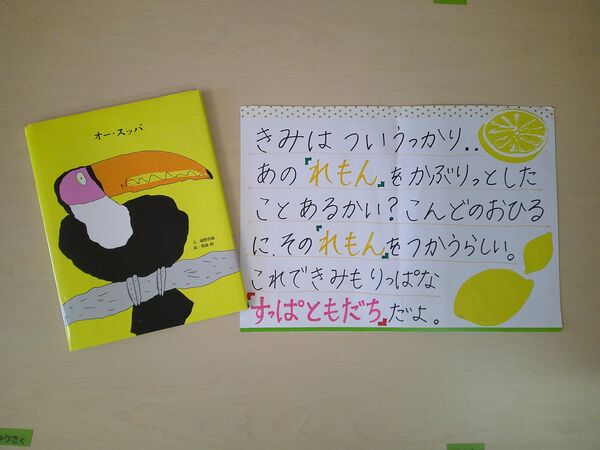 オー・スッパ
きみは ついうっかり..
あの「れもん」をかぶりっとした
こと あるかい?こんどのおひる
に、その「れもん」をつかうらしい。
これできみもりっぱな
「すっぱともだち」だよ。